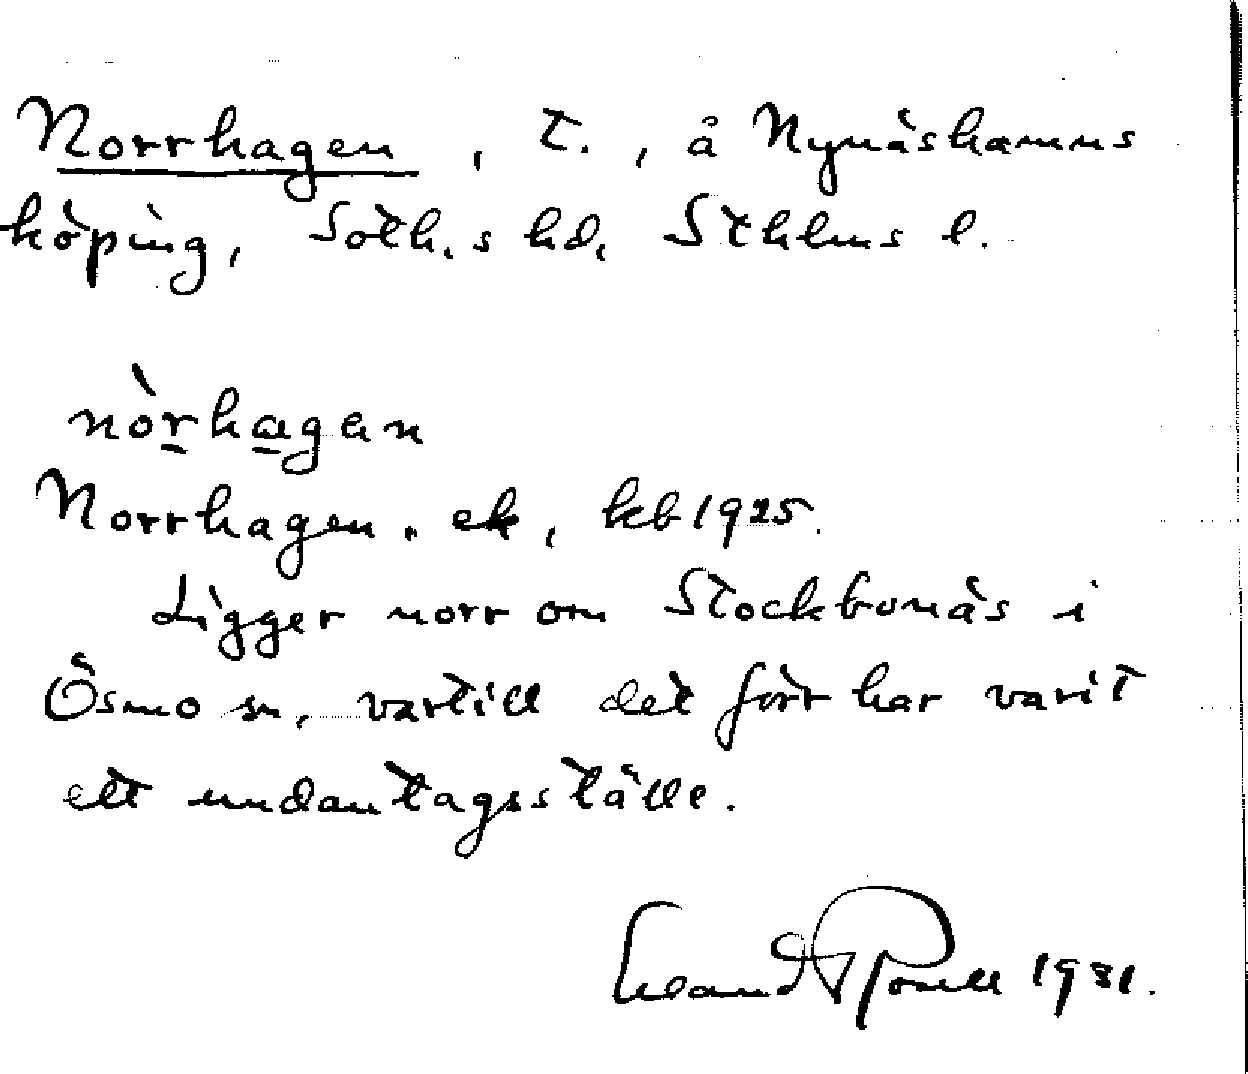 Norrhagen, t., å Nynäshamns
köping, Soth.s hd, Sthlms l.
nòrhagen
Norrhagen. ek, kb 1925.
Ligger norr om Stockbonäs i
Ösmo sn, vartill det förr har varit
ett undantagsställe.
1931.